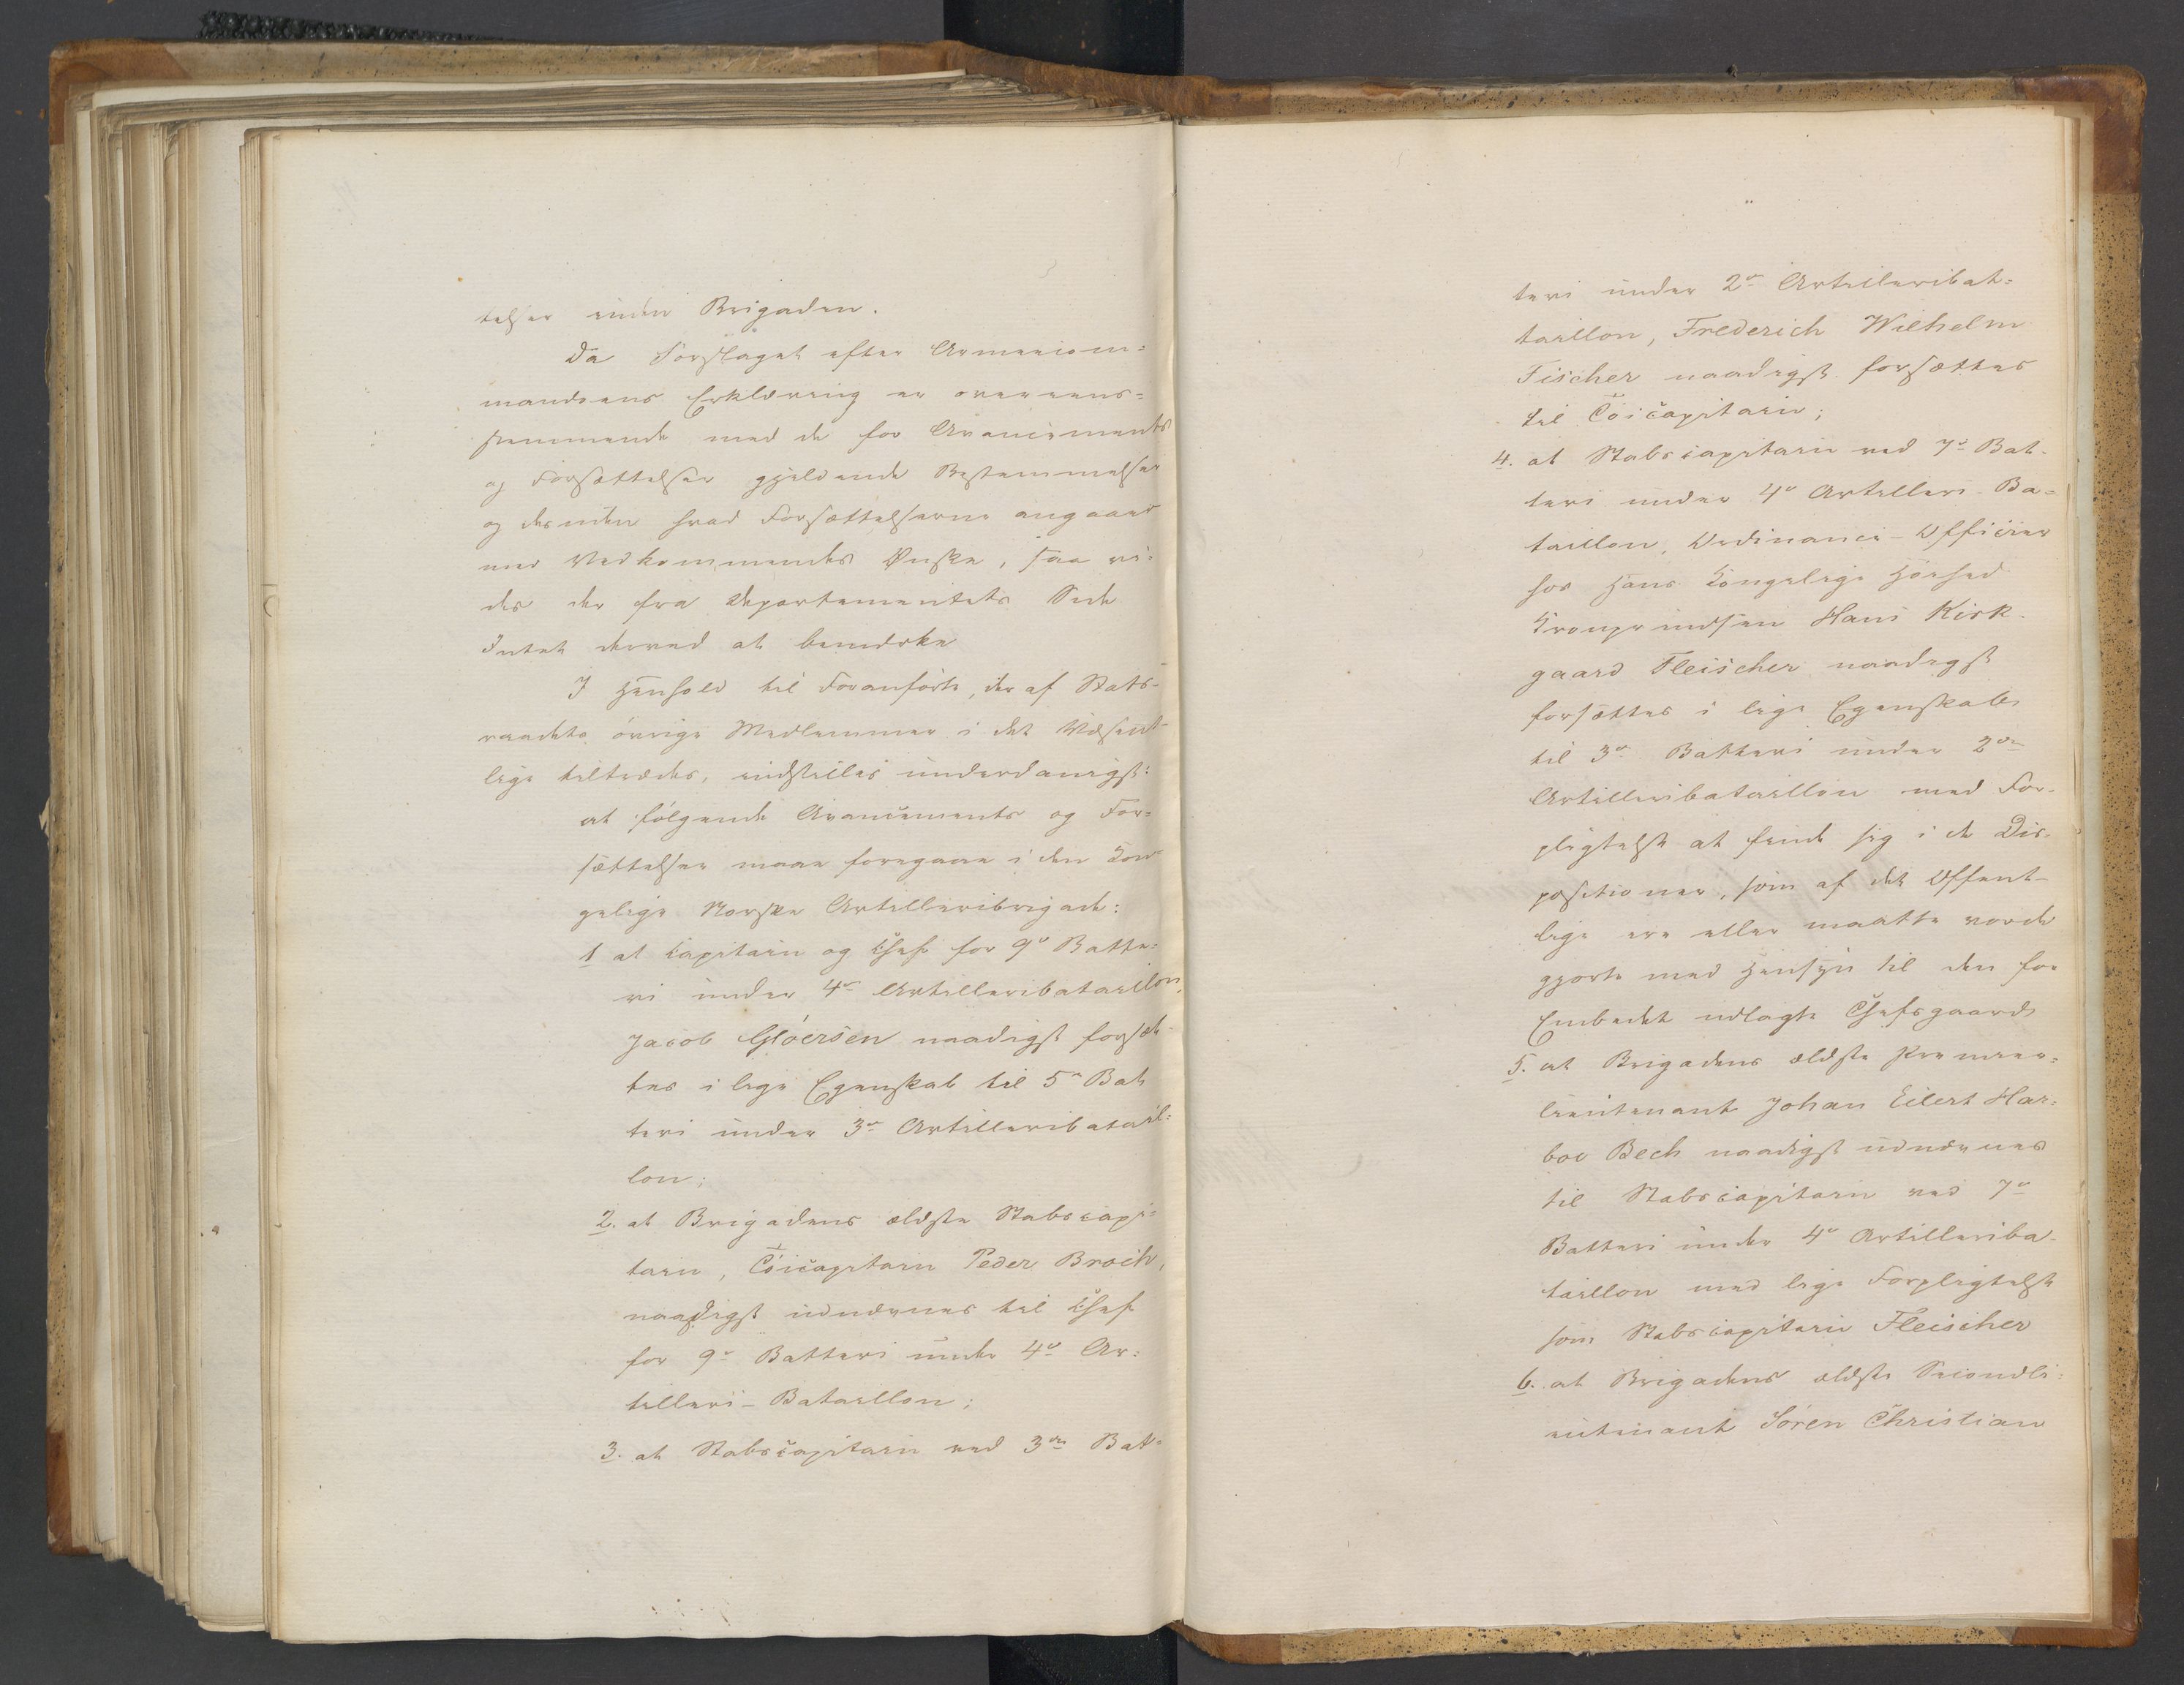 telser inden Brigaden.
Da Forslaget efter Armeecom-
mandoens Erklæring er overeens-
stemmende med de for Avancements
og Forsættelser gjeldende Bestemmelser
og desuden hvad Forsættelserne angaaer
med Vedkommendes Ønske, saa vi-
des der fra Departementets Side
Intet derved at bemærke
I Henhold til Foranførte, der af Stats-
raadets øvrige Medlemmer i det Væsent-
lige tiltrædes, indstilles underdanigst:
at følgende Avancements og For-
sættelser maae foregaae i den Kon-
gelige Norske Artilleribrigade:
1 at Capitain og Chef for 9de Batte-
ri under 4de Artilleribataillon,
Jacob Gløersen naadigst forsæt-
tes i lige Egenskab til 5te Bat
teri under 3die Artilleribatail-
lon;
2. at Brigadens ældste Stabscapi-
tain, Toicapitain Peder Broch,
naadigst udnævnes til Chef
for 9de Batteri under 4de Ar-
tilleri-Bataillon;
3. at Stabscapitain ved 3die Bat-
teri under 2det Artilleribat-
taillon, Frederich Wilhelm
Fischer naadigst forsættes
til Toicapitain;
4. at Stabscapitain ved 7de Bat-
teri under 4de Artilleri-Ba-
taillon, Ordinance-Officier
hos Hans Kongelige Høihed
Kronprindsen Hans Kirk-
gaard Fleischer naadigst
forsættes i lige Egenskab
til 3die Batteri under 2den
Artilleribataillon med For-
pligtelse at finde sig i de Dis-
positioner, som af det Offent-
lige ere eller maatte vorde
gjorte med Hensyn til den for
Embedet udlagte Chefsgaard
5. at Brigadens ældste Premier-
lieutenant Johan Eilert Har-
boe Bech naadigst udnævnes
til Stabscapitain ved 7de
Batteri under 4de Artilleriba-
taillon med lige Forpligtelse
som Stabscapitain Fleischer
6. at Brigadens ældste Secondli-
eutenant Søren Christian